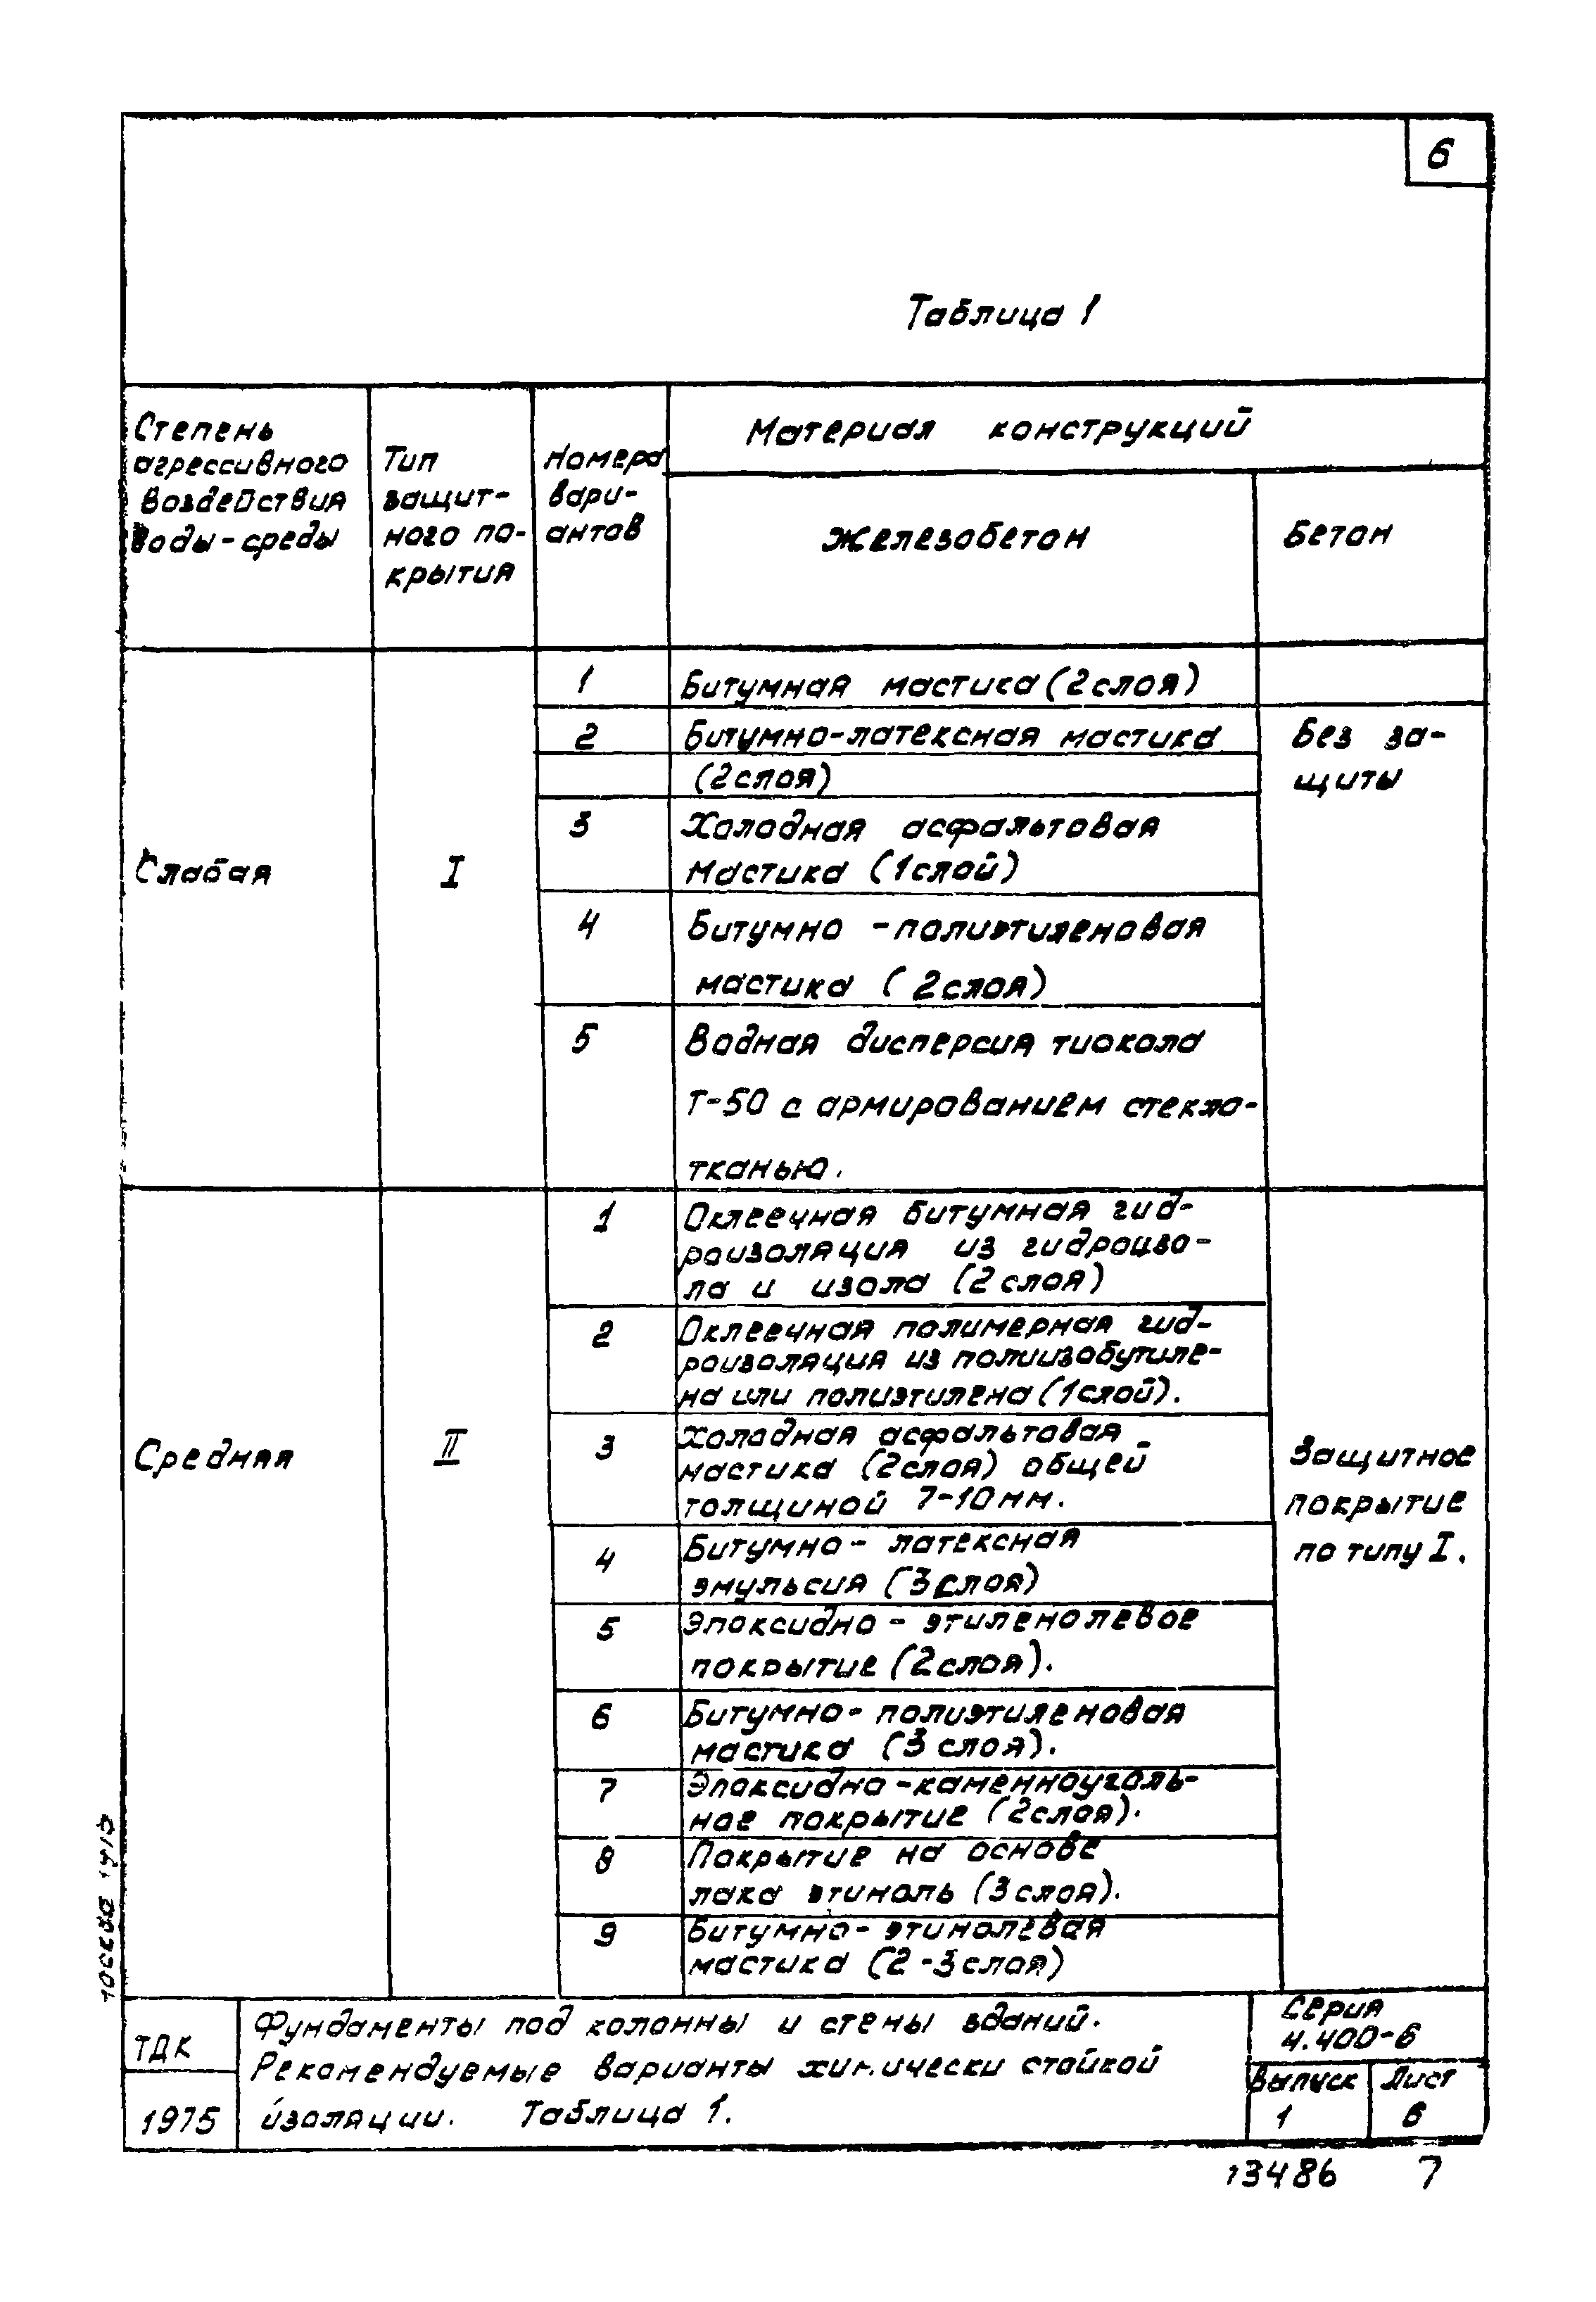 6
Таблица 1
Степень
агрессивного
воздействия
воды-среды
Тип
защит-
ного по-
крытия
Номера
вари-
антов
Материал конструкций
Железобетон
Бетон
Слабая
I
1
Битумная мастика (2 слоя)
2
Битумно-латексная мастика
(2 слоя)
3
Холодная асфальтовая
мастика (1 слой)
4
Битумно-полиэтиленовая
мастика (2 слоя)
5
Водная дисперсия тиокола
Т-50 с армированием стекло-
тканью.
Без за-
щиты
Средняя
II
1
Оклеечная битумная гид-
роизоляция из гидроизо-
ла и изола (2 слоя)
2
Оклеечная полимерная гид-
роизоляция из полиизобутиле-
на или полиэтилена (1 слой).
3
Холодная асфальтовая
мастика (2 слоя) общей
толщиной 7-10 мм.
4
Битумно-латексная
эмульсия (3 слоя)
5
Эпоксидно-этиленолевое
покрытие (2 слоя).
6
Битумно-полиэтиленовая
мастика (3 слоя).
7
Эпоксидно-каменноуголь-
ное покрытие (2 слоя).
8
Покрытие на основе
лака этиноль (3 слоя).
9
Битумно-этинолевая
мастика (2-3 слоя)
Защитное
покрытие
по типу I.
ТДК
1975
Фундаменты под колонны и стены зданий.
Рекомендуемые варианты химически стойкой
изоляции. Таблица 1.
Серия
4.400-6
Выпуск
1
Лист
6
13486 7